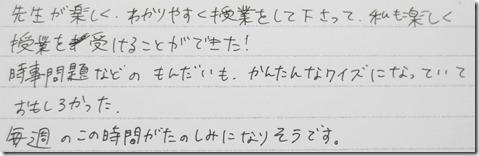 先生が楽しく、わかりやすく授業をして下さって、私も楽しく
授業を受けることができた!
時事問題などの もんだいも、かんたんなクイズになっていて
おもしろかった。
毎週 のこの時間がたのしみになりそうです。